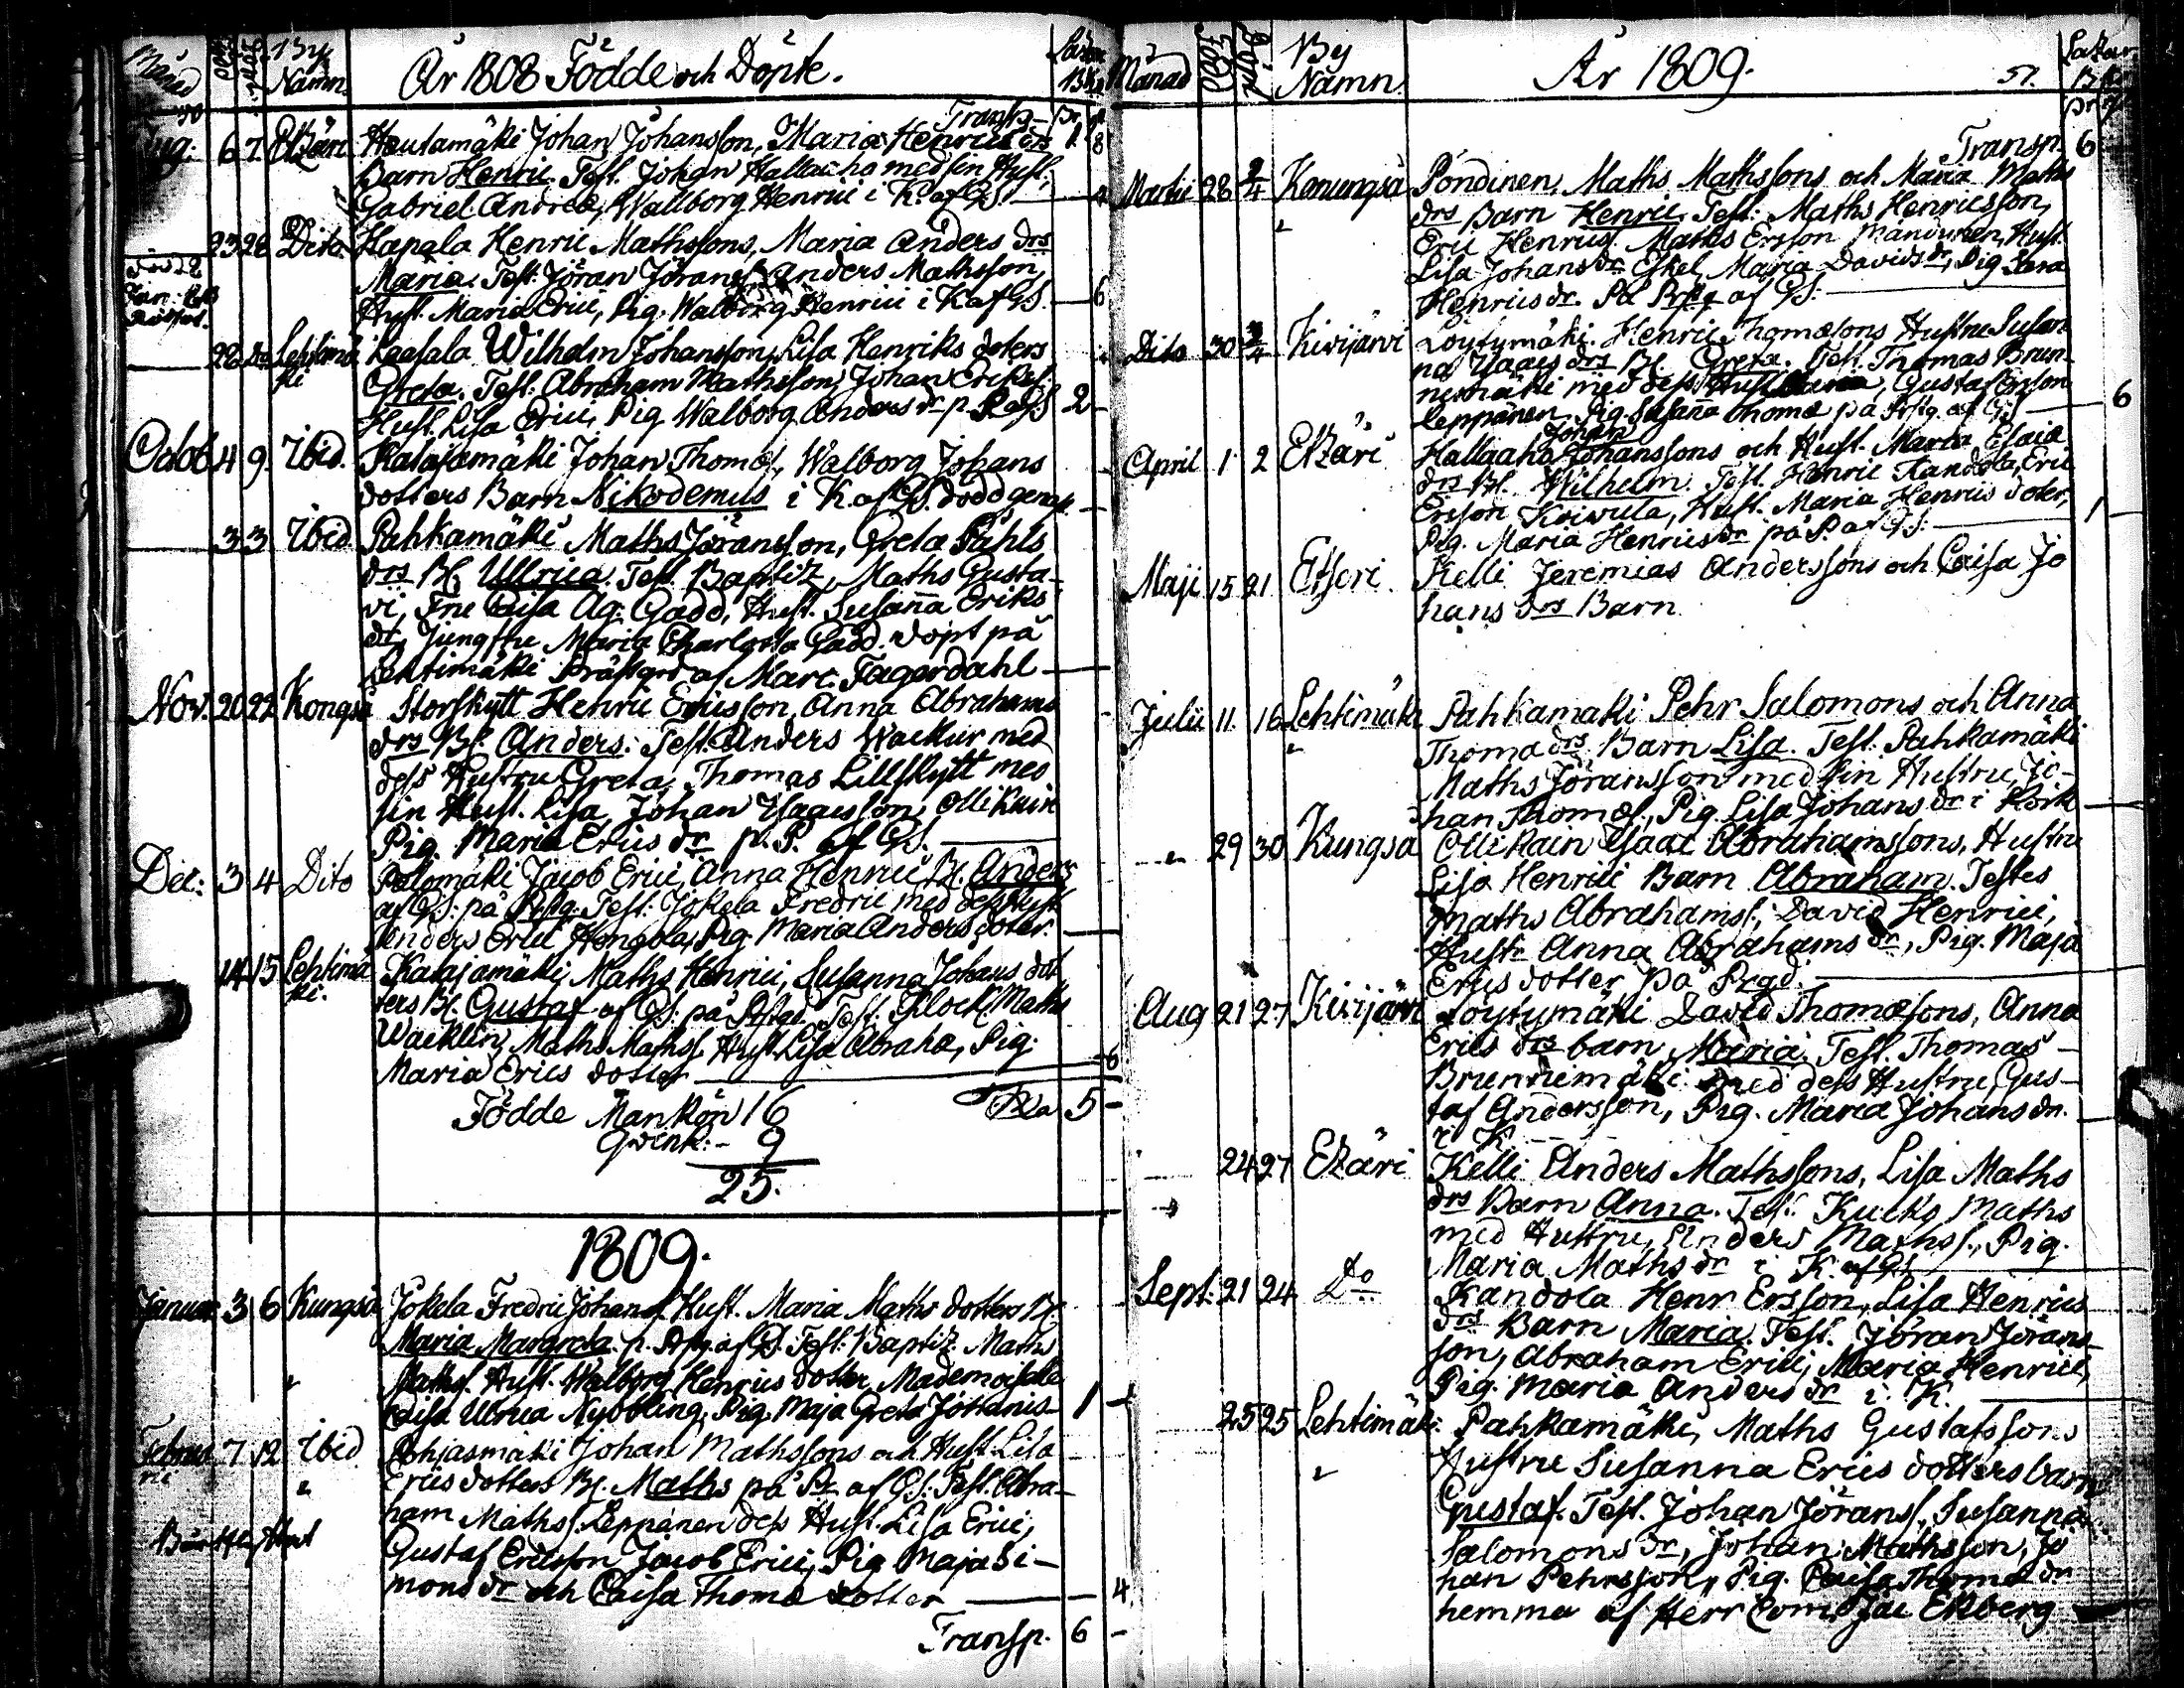 Månad
By
Namn
År 1808 Födde och Döpte.
Transp.
Aug: 6 7 Etzäri Hautamäki Johan Johansson, Maria Henrics drs
Barn Henric. Test. Johan Hallaaho med sin Hust.
Gabriel Andreæ, Wallborg Henrici i K. af GS.
23 28 Dito Hapala Henric Mathssons, Maria Anders drs
Maria. Test. Jöran Jöransf. Anders Mathsson,
Hust. Maria Erici, Pig. Walborg Henrici i K af GS. 6
28 Do Lehtimäki Laasala Wilhelm Johansson, Lisa Henriks doters
Greta. Test. Abraham Mathsson, Johan Eriksf.
Hust. Lisa Erici, Pig Walborg Anders dr p. P. af GS 2
Octob. 4 9 Ibid. Katajamäki Johan Thomæ, Walborg Johans
dotters Barn Nikodemus i K. af GS. död genast
3 3 Ibid Pahkamäki Maths Jöransson, Greta Påhls
drs Bl Ullrica. Test. Baptiz, Maths Gusta-
vi, Fru Caisa Ag. Gadd, Hust. Susanna Eriks
dr, Jungfru Maria Charlotta Gadd. döpt på
Lehtimäki Prästgrd af Marc Fagerdahl
Nov. 20 22 Kongså Storskytt Henric Ericsson, Anna Abrahams
drs Bl. Anders. Test. Anders Wackur med
dess Hustru Greta, Thomas Lillskytt med
sin Hust. Lisa, Johan Isaacsson, Ollikain
Pig. Maria Erics dr p. P. af GS.
Dec: 3 4 Dito Palomäki Jacob Erici, Anna Henrici Bl. Anders
af GS: på Prstg. Test: Jokela Fredric med dess Hust.
Anders Erici Hongola, Pig. Maria Anders doter.
14 15 Lehtimäki. Katajamäki Maths Henrici, Susanna Johans dot
ters Bl. Gustaf af GS. på Prstgd. Test. Klock. Maths
Wacklin, Maths Mathsf. Hust. Lisa Abraha, Pig.
Maria Erics dotter 6
Födde Mankön 16 5
Qvink: - 9
25.
1809.
Januar 3 6 Kungså Jokela Fredric Johansf. Hust. Maria Maths dotters Bl.
Maria Margreta. p. Prstg. af GS. Test: Baptiz. Maths
Mathsf. Hust. Walborg Henrics dotter, Mademoiselle
Caisa Ulrica Nybbling, Pig. Maja Greta Johanis 1
Februarii 7 12 Ibid Pohjasmäki Johan Mathssons och Hust. Lisa
Erics dotters Bl. Maths på Pr af GS: Test. Abra-
ham Mathsf. Leppänen dess Hust. Lisa Erici,
Gustaf Ericsson Jacob Erici, Pig Maja Si-
mons dr och Caisa Thomæ dotter 4
Transp. 6
Månad
By
Namn.
År 1809.
57.
Transp. 6
Martii 28 2/4 Konungså Pöndinen, Maths Mathssons och Maria Maths
drs Barn Henric. Test: Maths Henricsson,
Eric Henricsf. Maths Ersson Mandunen, Hust.
Lisa Johans dr Eskel, Maria Davids dr, Pig
Henrics dr. På Prstg af GS:
Dito 30 3/4 Kivijärvi Löytymäki. Henric Thomæsons Hustru Susan
na Isaacs drs Bl. Greta. Test. Thomas Brun-
nimäki med dess Hust Maria, Gustaf Ersson
Leppänen, Pig. Susanna Thomæ på Prstg. af GS 6
April 1 2 Etzäri Hallaaho Johan Johanssons och Hust. Maria Esaiæ
drs Bl. Wilhelm. Test. Henric Kandola, Eric
Ersson Koivula, Hust. Maria Henrics doter,
Pig. Maria Henrics dr på P. af GS: 1
Maji 15 21 Etseri Kelli Jeremias Anderssons och Caisa Jo
hans drs Barn
Julii 11 16 Lehtimäki Pahkamäki Pehr Salomons och Anna
Thoma drs Barn Lisa. Test. Pahkamäki
Maths Jöransson med sin Hustru, Jo-
han Thomæf., Pig. Lisa Johans dr i Körk
29 30 Kungså Ollikain Isaac Abrahamssons, Hustru
Lisa Henrici Barn Abraham. Testes
Maths Abrahamsf., David Henrici,
Hustr Anna Abrahams dr, Pig. Maja
Erics dotter på Prgd.
Aug 21 27 Kivijärvi Löytymäki David Thomæsons, Anna
Erics drs barn Maria. Test. Thomas
Brunnimäki med dess Hustru, Gus-
taf Andersson, Pig. Maria Johans dr.
i K.
24 27 Etzäri Kelli Anders Mathssons, Lisa Maths
drs Barn Anna. Test. Kucko Maths
med Hustru, Anders Mathsf., Pig.
Maria Maths dr i K. af GS
Sept. 21 24 Do Kandola Henr Ersson, Lisa Henrics
drs Barn Maria. Test. Jöran Jörans-
son, Abraham Erici, Maria Henrici,
Pig. Maria Anders dr i K.
25 25 Lehtimäki Pahkamäki, Maths Gustafssons
Hustru Susanna Erics dotters barn
Gustaf. Test. Johan Jöransf. Susanna
Salomons dr, Johan Mathsson, Jo
han Pehrsson, Pig. Caisa Thomæ dr
hemma af Herr Com. Jac Ekberg